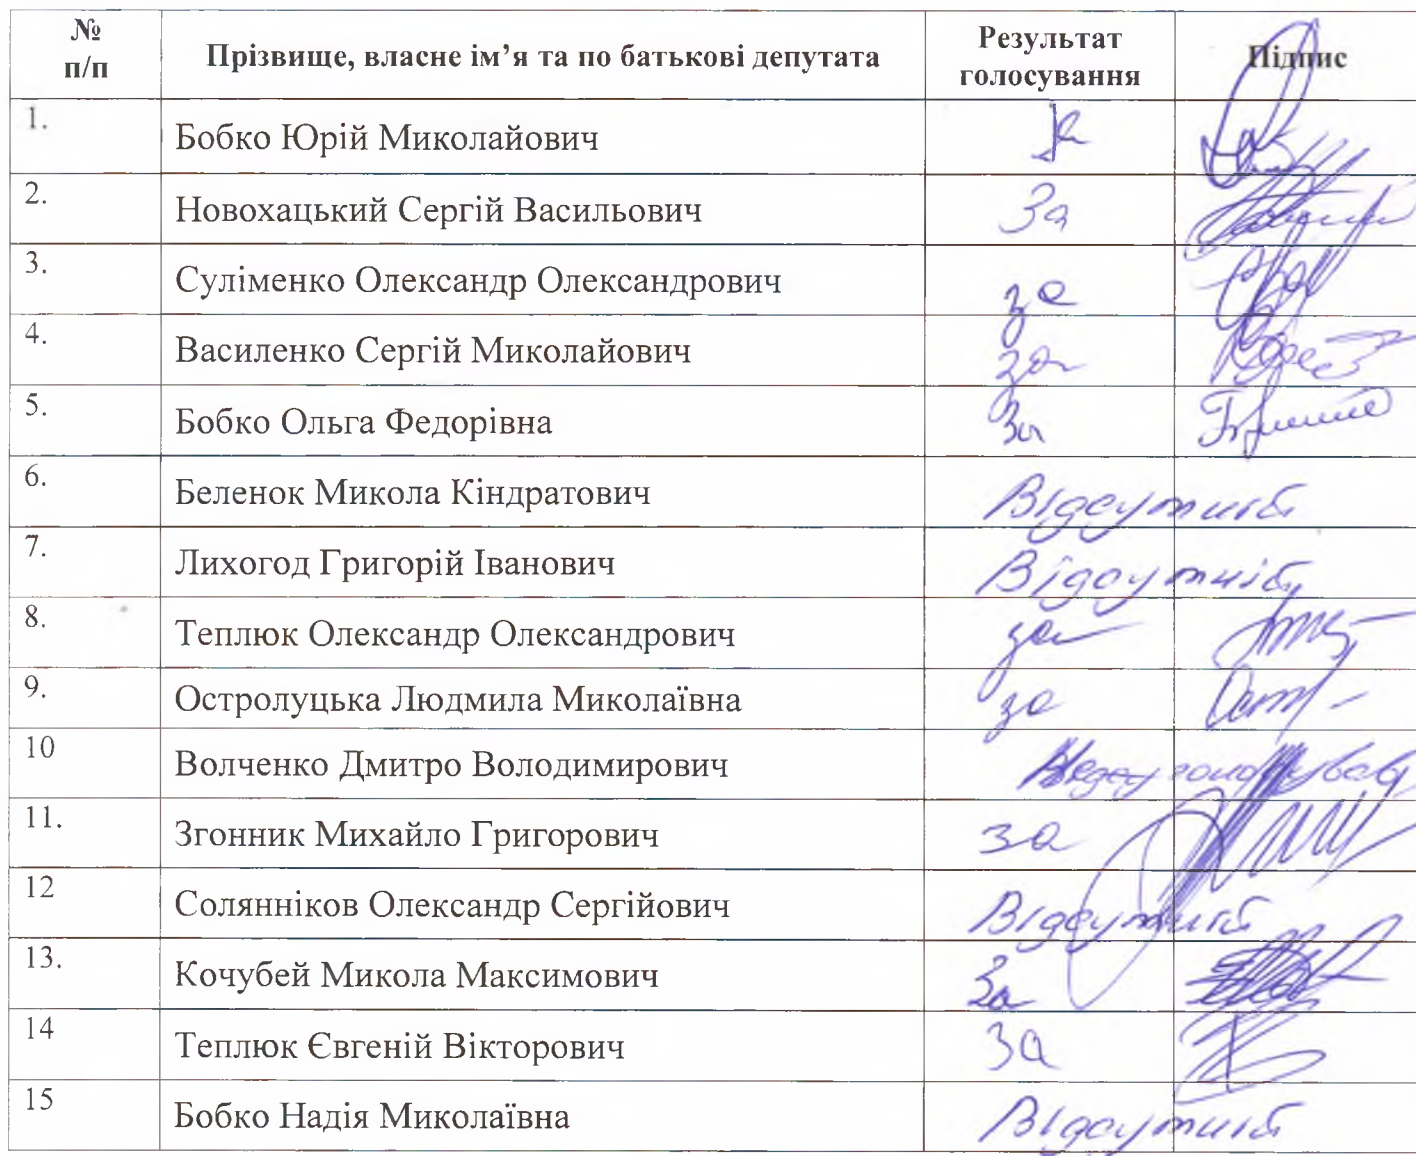 № п/п Прізвище, власне ім’я та по батькові депутата Результат голосування Підпис
1. Бобко Юрій Миколайович за
2. Новохацький Сергій Васильович За
3. Суліменко Олександр Олександрович за
4. Василенко Сергій Миколайович за
5. Бобко Ольга Федорівна За
6. Беленок Микола Кіндратович Відсутній
7. Лихогод Григорій Іванович Відсутній
8. Теплюк Олександр Олександрович за
9. Остролуцька Людмила Миколаївна за
10 Волченко Дмитро Володимирович голосував
11. Згонник Михайло Григорович за
12 Солянніков Олександр Сергійович Відсутній
13. Кочубей Микола Максимович За
14 Теплюк Євгеній Вікторович За
15 Бобко Надія Миколаївна Відсутній